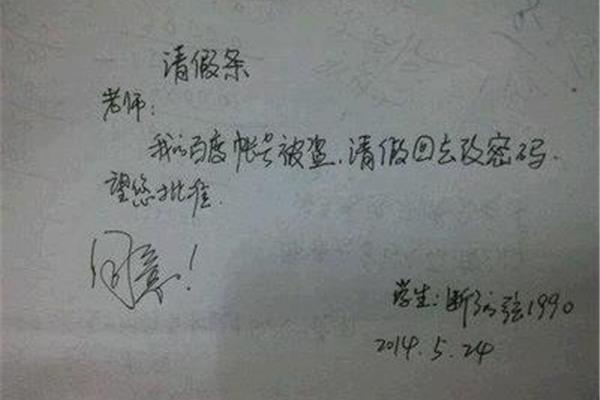 请假条
老师:
我的百度帐号被盗、请假回去改密码.
望您批准.
同意!
学生:断的弦1990
2014.5.24